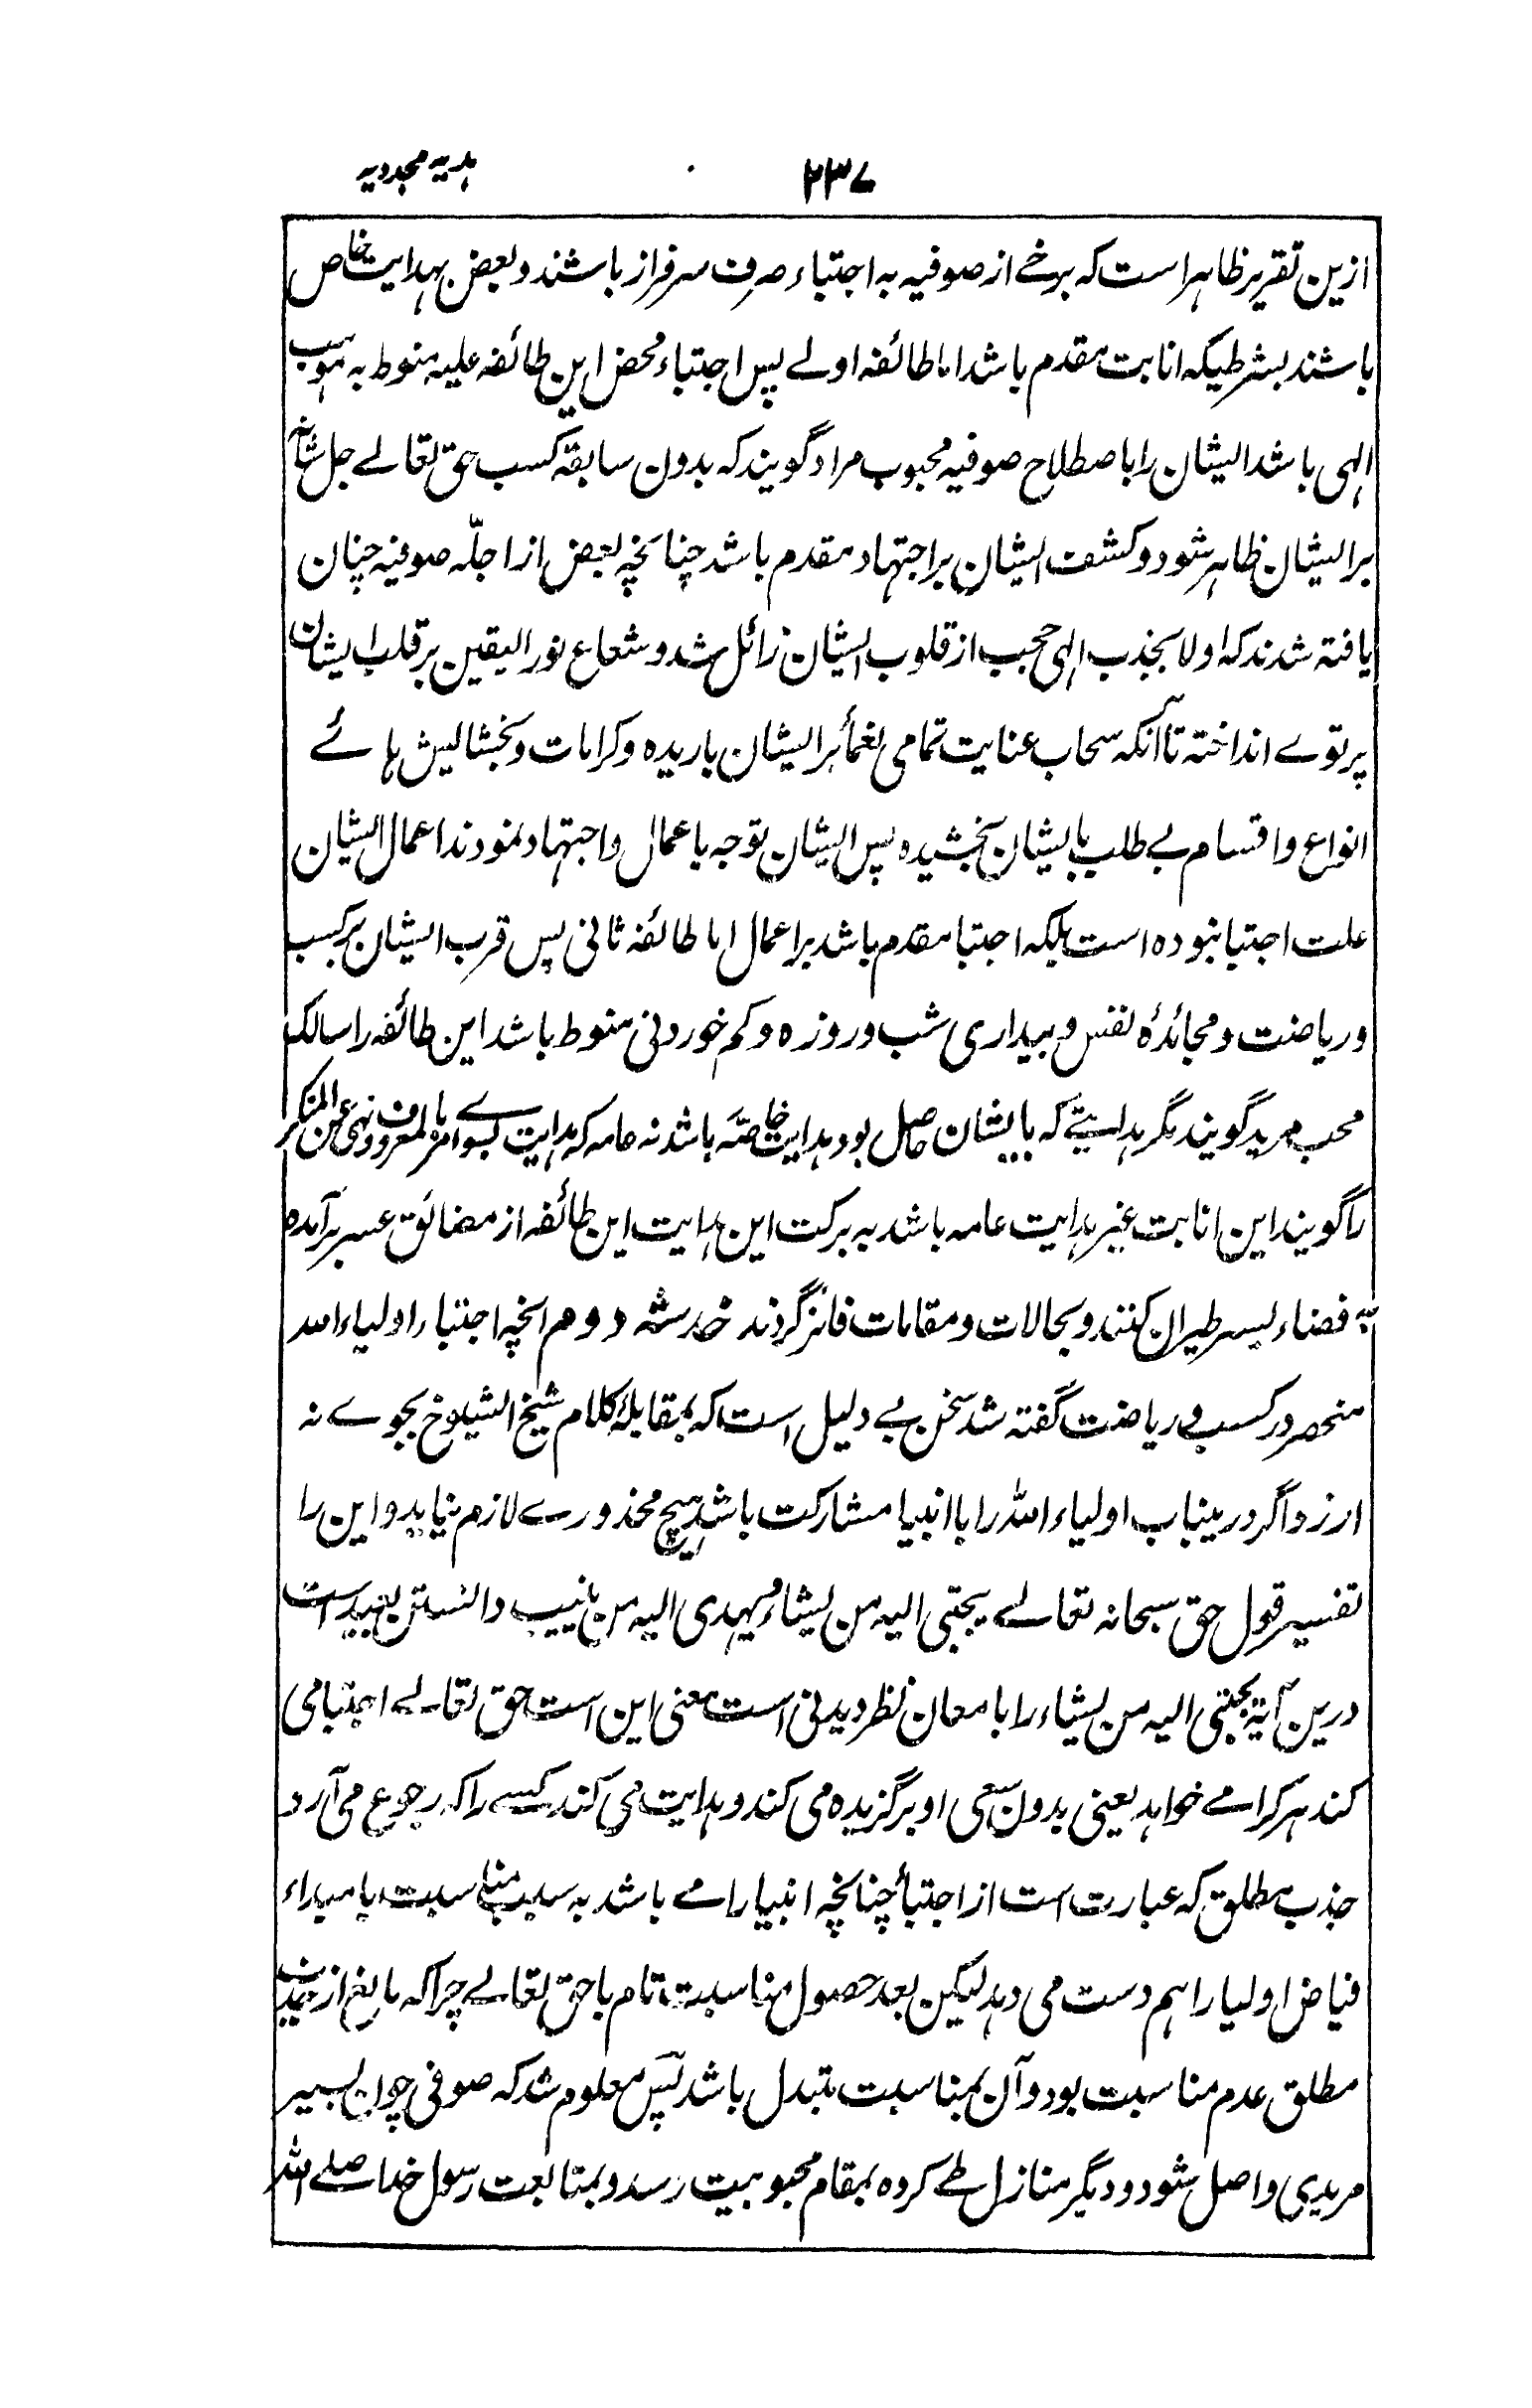 ۲۳۷ ہدیہ مجددیہ
ازین تقریر ظاہر است کہ برخے از صوفیہ بہ اجتباء صرف سرفراز باشند و بعض بہدایت خاص
باشند بشرطیکہ انابت مقدم باشد اما طائفہ اولے پس اجتباء محض این طائفہ علیہ منوط بہ موہب
الہی باشد ایشان را باصطلاح صوفیہ محبوب مراد گویند کہ بدون سابقۂ کسب حق تعالے جل شانہ
بر ایشان ظاہر شود و کشف ایشان بر اجتہاد مقدم باشد چنانچہ بعض از اجلّہ صوفیہ چنان
یافتہ شدند کہ اولا بجذب الہی حجب از قلوب ایشان زائل شد و شعاع نور الیقین بر قلب ایشان
پرتوے انداختہ تا آنکہ سحاب عنایت تمامی نعماء بر ایشان باریدہ و کرامات و بخشایش ہائے
انواع و اقسام بے طلب بایشان بخشیدہ پس ایشان توجہ باعمال و اجتہاد نمودند اعمال ایشان
علت اجتبا نبودہ است بلکہ اجتبا مقدم باشد بر اعمال اما طائفہ ثانی پس قرب ایشان بر کسب
و ریاضت و مجائدۂ نفس و بیداری شب و روزہ و کم خوردنی منوط باشد این طائفہ را سالک
محب مرید گویند مگر ہدایتے کہ بایشان حاصل بود ہدایت خاصّہ باشد نہ عامہ کہ ہدایت بسوے امر بالمعروف و نہی عن المنکر
را گویند این انابت غیر ہدایت عامہ باشد بہ برکت این ہدایت این طائفہ از مضائق عسر برآمدہ
بہ فضاء یسر طیران کنند و بحالات و مقامات فائز گردند خدشہ دوم انچہ اجتبا را اولیاء اللہ
منحصر در کسب و ریاضت گفتہ شد سخن بے دلیل است کہ بمقابلۂ کلام شیخ الشیوخ بجوے نہ
ارزد و اگر درینباب اولیاء اللہ را با انبیا مشارکت باشد ہیچ محذورے لازم نیاید و این را
تفسیر قول حق سبحانہ تعالے یجتبی الیہ من یشاء و یہدی الیہ من ینیب دانستن بعید است
درین آیۃ یجتبی الیہ من یشاء را بامعان نظر دیدنی است معنی این است حق تعالے اجتبا می
کند ہر کرا مے خواہد یعنی بدون سعی او برگزیدہ می کند و ہدایت می کند کسے را کہ رجوع می آرد
جذب مطلق کہ عبارت است از اجتبأ چنانچہ انبیا را مے باشد بہ سبب مناسبت با مبداء
فیاض اولیا را ہم دست می دہد لیکن بعد حصول مناسبت تام باحق تعالے چرا کہ مانع از جذب
مطلق عدم مناسبت بود و آن بمناسبت متبدل باشد پس معلوم شد کہ صوفی چون بسیر
مریدی واصل شود و دیگر منازل طے کردہ بمقام محبوبیت رسد و بمتابعت رسول خدا صلے اللہ